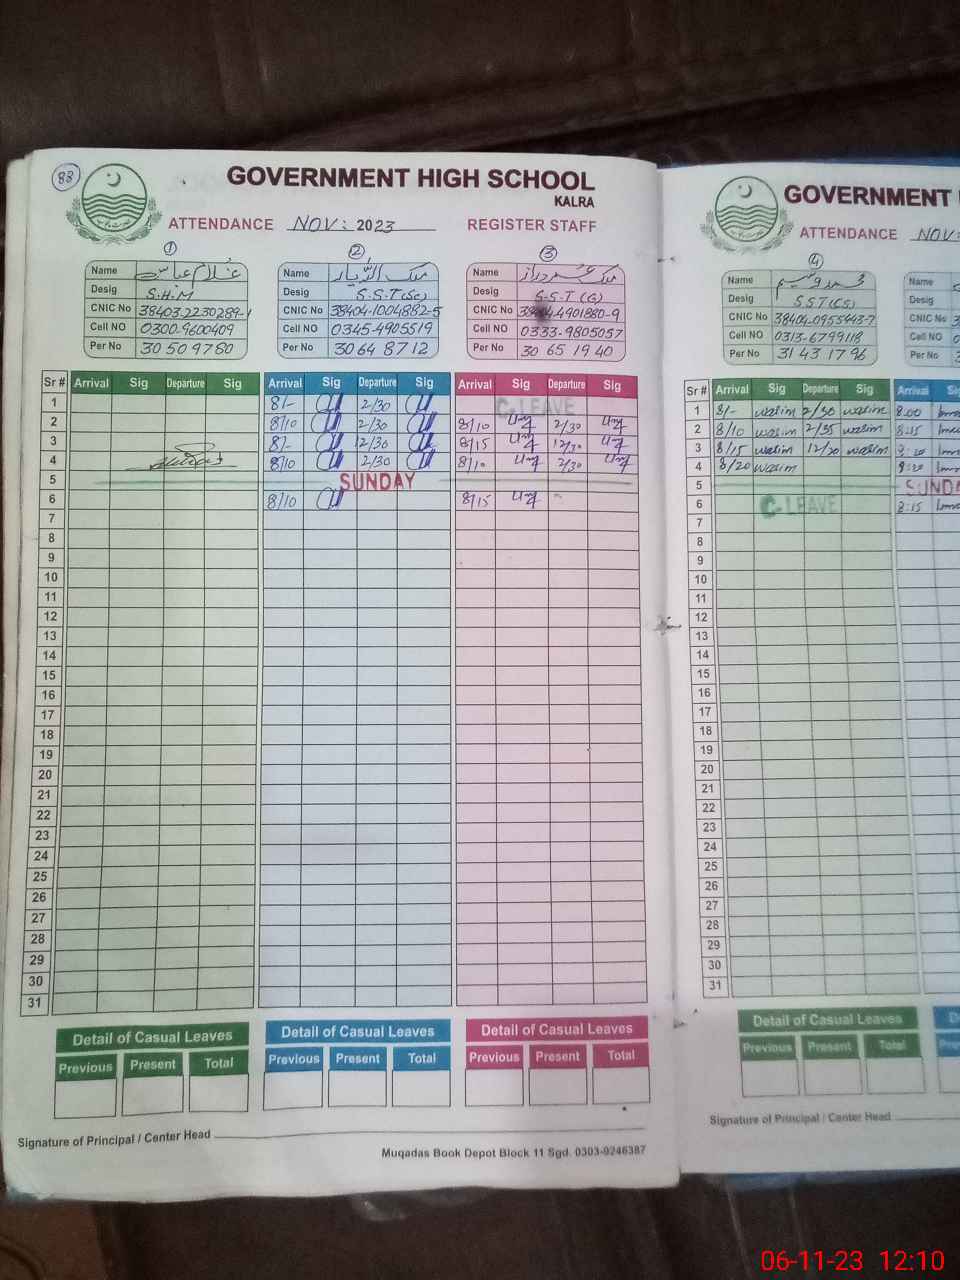 88
GOVERNMENT HIGH SCHOOL
KALRA
ATTENDANCE NOV: 2023 REGISTER STAFF
1 2 3
Name غلام عباس Name Name
Desig S.H.M Desig S.S.T (Sc) Desig S.S.T (G)
CNIC No 38403-2230289-1 CNIC No 38404-1004882-5 CNIC No 4901880-9
Cell NO 0300-9600409 Cell NO 0345-4905519 Cell NO 0333-9805057
Per No 30509780 Per No 30648712 Per No 30651940
Sr # Arrival Sig Departure Sig Arrival Sig Departure Sig Arrival Sig Departure Sig
1 8/- 2/30 C. LEAVE
2 8/10 2/30 8/10 2/30
3 8/- 12/30 8/15 12/30
4 8/10 2/30 8/10 2/30
5 SUNDAY
6 8/10 8/15
7
8
9
10
11
12
13
14
15
16
17
18
19
20
21
22
23
24
25
26
27
28
29
30
31
Detail of Casual Leaves Detail of Casual Leaves Detail of Casual Leaves
Previous Present Total Previous Present Total Previous Present Total
Signature of Principal / Center Head
Muqadas Book Depot Block 11 Sgd. 0303-9246387
GOVERNMENT
ATTENDANCE NOV:
4
Name Name
Desig S.S.T (CS) Desig
CNIC No 38404-0955443-7 CNIC No
Cell NO 0313-6799118 Cell NO
Per No 31431796 Per No
Sr # Arrival Sig Departure Sig Arrival Sig
1 8/- wasim 2/30 wasim 8.00
2 8/10 wasim 2/35 wasim 8:15
3 8/15 wasim 12/30 wasim
4 8/20 wasim
5 SUNDA
6 C. LEAVE 8:15
7
8
9
10
11
12
13
14
15
16
17
18
19
20
21
22
23
24
25
26
27
28
29
30
31
Detail of Casual Leaves
Previous Present Total
Signature of Principal / Center Head
06-11-23 12:10